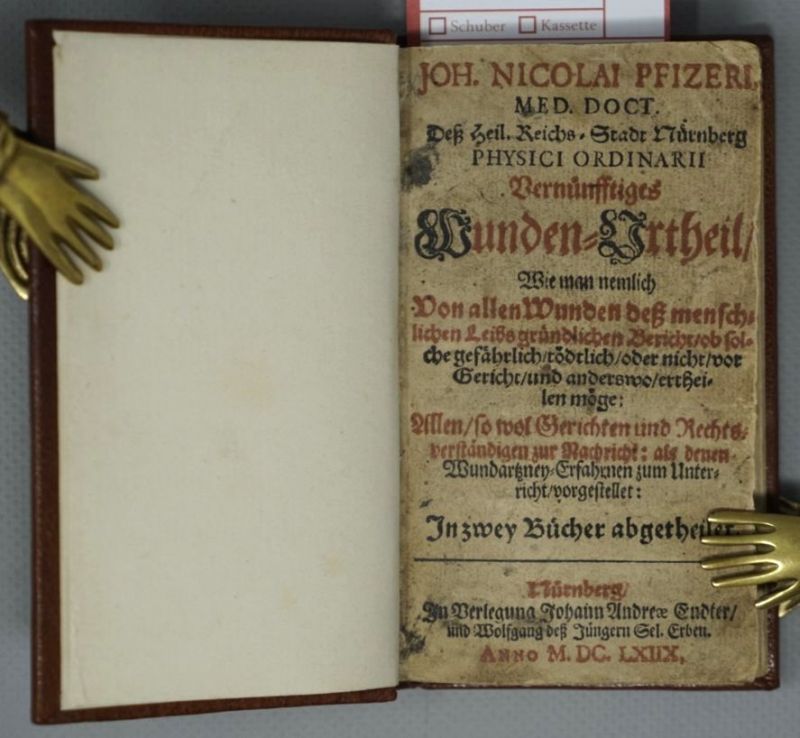 Schuber Kassette
JOH. NICOLAI PFIZERI,
MED. DOCT.
Deß Heil. Reichs-Stadt Nürnberg
PHYSICI ORDINARII
Vernünfftiges
Wunden-Urtheil/
Wie man nemlich
Von allen Wunden deß mensch-
lichen Leibs gründlichen Bericht/ob sol-
che gefährlich/tödtlich/oder nicht/vor
Gericht/und anderswo/erthei-
len möge:
Allen/so wol Gerichten und Rechts-
verständigen zur Nachricht: als denen
Wundartzney-Erfahrnen zum Unter-
richt/vorgestellet:
In zwey Bücher abgetheilet.
Nürnberg/
In Verlegung Johann Andreæ Endter/
und Wolfgang deß Jüngern Sel. Erben.
ANNO M. DC. LXIIX.